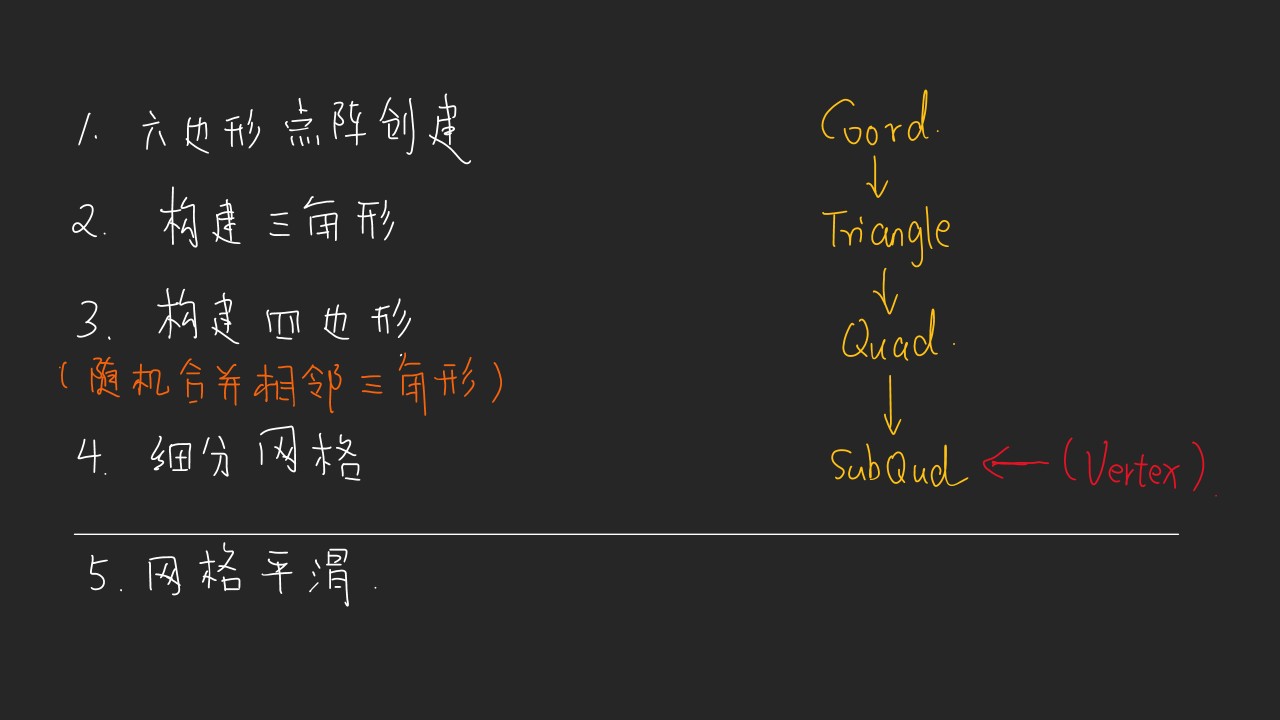 1. 六边形点阵创建
2. 构建三角形
3. 构建四边形
(随机合并相邻三角形)
4. 细分网格
5. 网格平滑.
Coord.
↓
Triangle
↓
Quad.
↓
SubQud ← (Vertex).